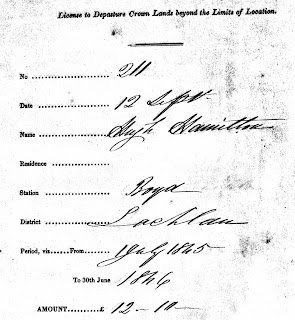 License to Depasture Crown Lands beyond the Limits of Location.
No 211
Date 12 Septr
Name Hugh Hamilton
Residence
Station Boyd
District Lachlan
Period, viz. From 1 July 1845
To 30th June 1846
AMOUNT £ 12-10-